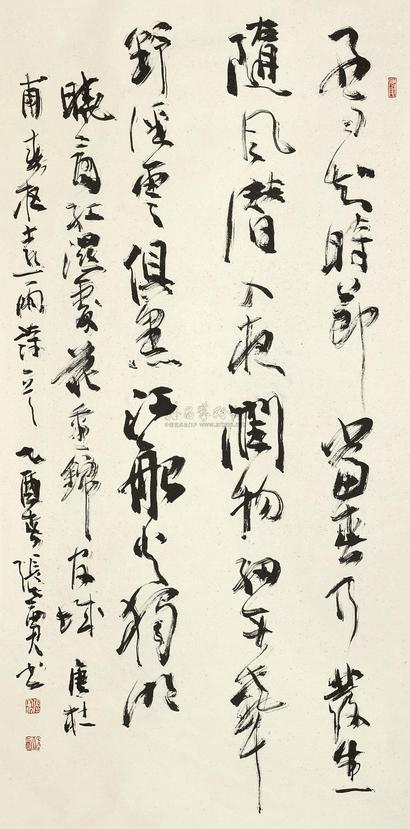 好雨知時節當春乃發生
隨風潛入夜潤物細無聲
野徑雲俱黑江船火獨明
曉看紅濕處花重錦官城唐杜
甫春夜喜雨乙酉春張書